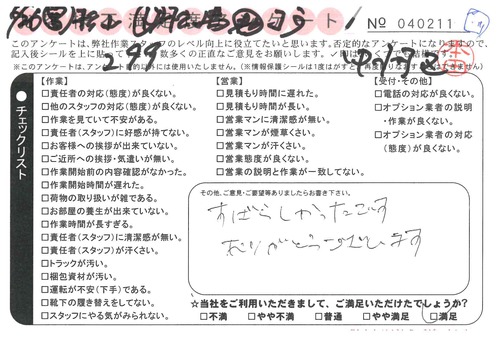 № 040211
このアンケートは、弊社作業スタッフのレベル向上に役立てたいと思います。否定的なアンケートになりますので、
チェックリスト
【作業】
□責任者の対応(態度)が良くない。
□他のスタッフの対応(態度)が良くない。
□作業を見ていて不安がある。
□責任者(スタッフ)に好感が持てない。
□お客様への挨拶が出来ていない。
□ご近所への挨拶・気遣いが無い。
□作業開始前の内容確認がなかった。
□作業開始時間が遅れた。
□荷物の取り扱いが雑である。
□お部屋の養生が出来ていない。
□作業時間が長すぎる。
□責任者(スタッフ)に清潔感が無い。
□責任者(スタッフ)が汗くさい。
□トラックが汚い。
□梱包資材が汚い。
□運転が不安(下手)である。
□靴下の履き替えをしてない。
□スタッフにやる気がみられない。
【営業】
□見積もり時間に遅れた。
□見積もり時間が長い。
□営業マンに清潔感が無い。
□営業マンが煙草くさい。
□営業マンが汗くさい。
□営業態度が良くない。
□営業の説明と作業が一致してない。
【受付・その他】
□電話の対応が良くない。
□オプション業者の説明
・作業が良くない。
□オプション業者の対応
(態度)が良くない。
その他、ご意見・ご要望等ありましたらお書き下さい。
すばらしかったです
ありがとうございます
☆当社をご利用いただきまして、ご満足いただけたでしょうか?
□不満 □やや不満 □普通 □やや満足 □満足